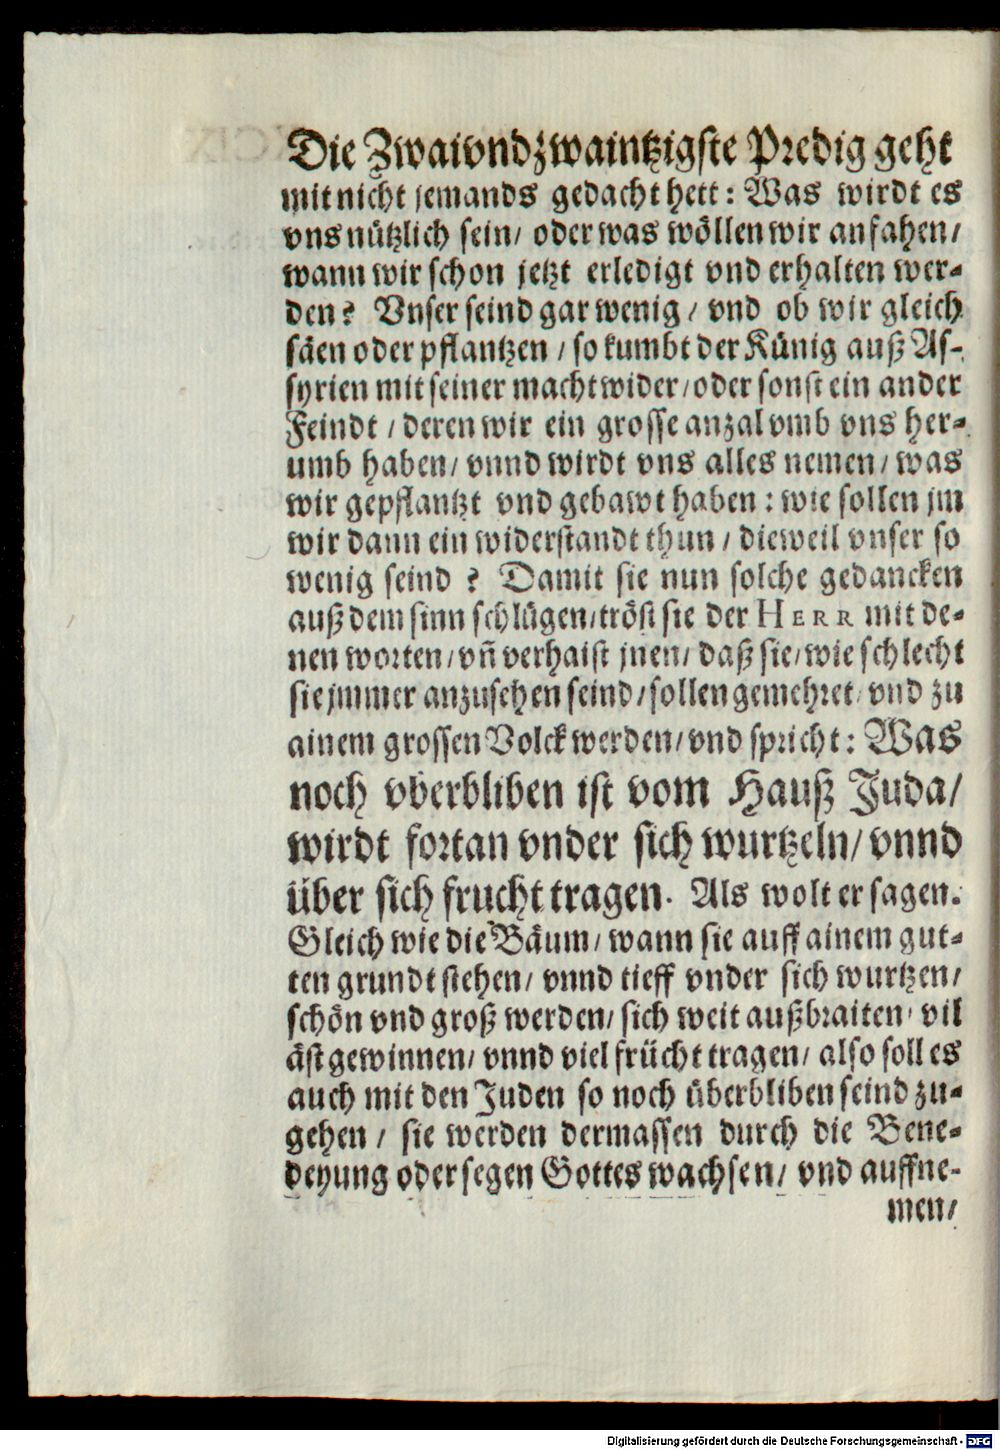 Die Zwaivndzwaintzigste Predig geht
mit nicht jemands gedacht hett: Was wirdt es
vns nützlich sein/ oder was wöllen wir anfahen/
wann wir schon jetzt erledigt vnd erhalten wer-
den? Vnser seind gar wenig/ vnd ob wir gleich
säen oder pflantzen/ so kumbt der Künig auß As-
syrien mit seiner macht wider/ oder sonst ein ander
Feindt/ deren wir ein grosse anzal vmb vns her-
umb haben/ vnnd wirdt vns alles nemen/ was
wir gepflantzt vnd gebawt haben: wie sollen jm
wir dann ein widerstandt thun/ dieweil vnser so
wenig seind? Damit sie nun solche gedancken
auß dem sinn schlügen/ tröst sie der HERR mit de-
nen worten/ vn̄ verhaist jnen/ daß sie/ wie schlecht
sie jmmer anzusehen seind/ sollen gemehret/ vnd zu
ainem grossen Volck werden/ vnd spricht: Was
noch vberbliben ist vom Hauß Juda/
wirdt fortan vnder sich wurtzeln/ vnnd
über sich frucht tragen. Als wolt er sagen.
Gleich wie die Bäum/ wann sie auff ainem gut-
ten grundt stehen/ vnnd tieff vnder sich wurtzen/
schön vnd groß werden/ sich weit außbraiten/ vil
äst gewinnen/ vnnd viel frücht tragen/ also soll es
auch mit den Juden so noch überbliben seind zu-
gehen/ sie werden dermassen durch die Bene-
deyung oder segen Gottes wachsen/ vnd auffne-
men/
Digitalisierung gefördert durch die Deutsche Forschungsgemeinschaft - DFG